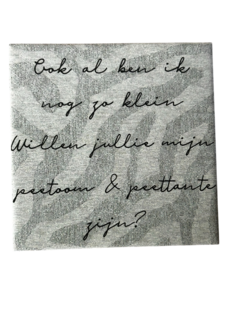 Ook al ben ik
nog zo klein
Willen jullie mijn
peetoom & peettante
zijn?